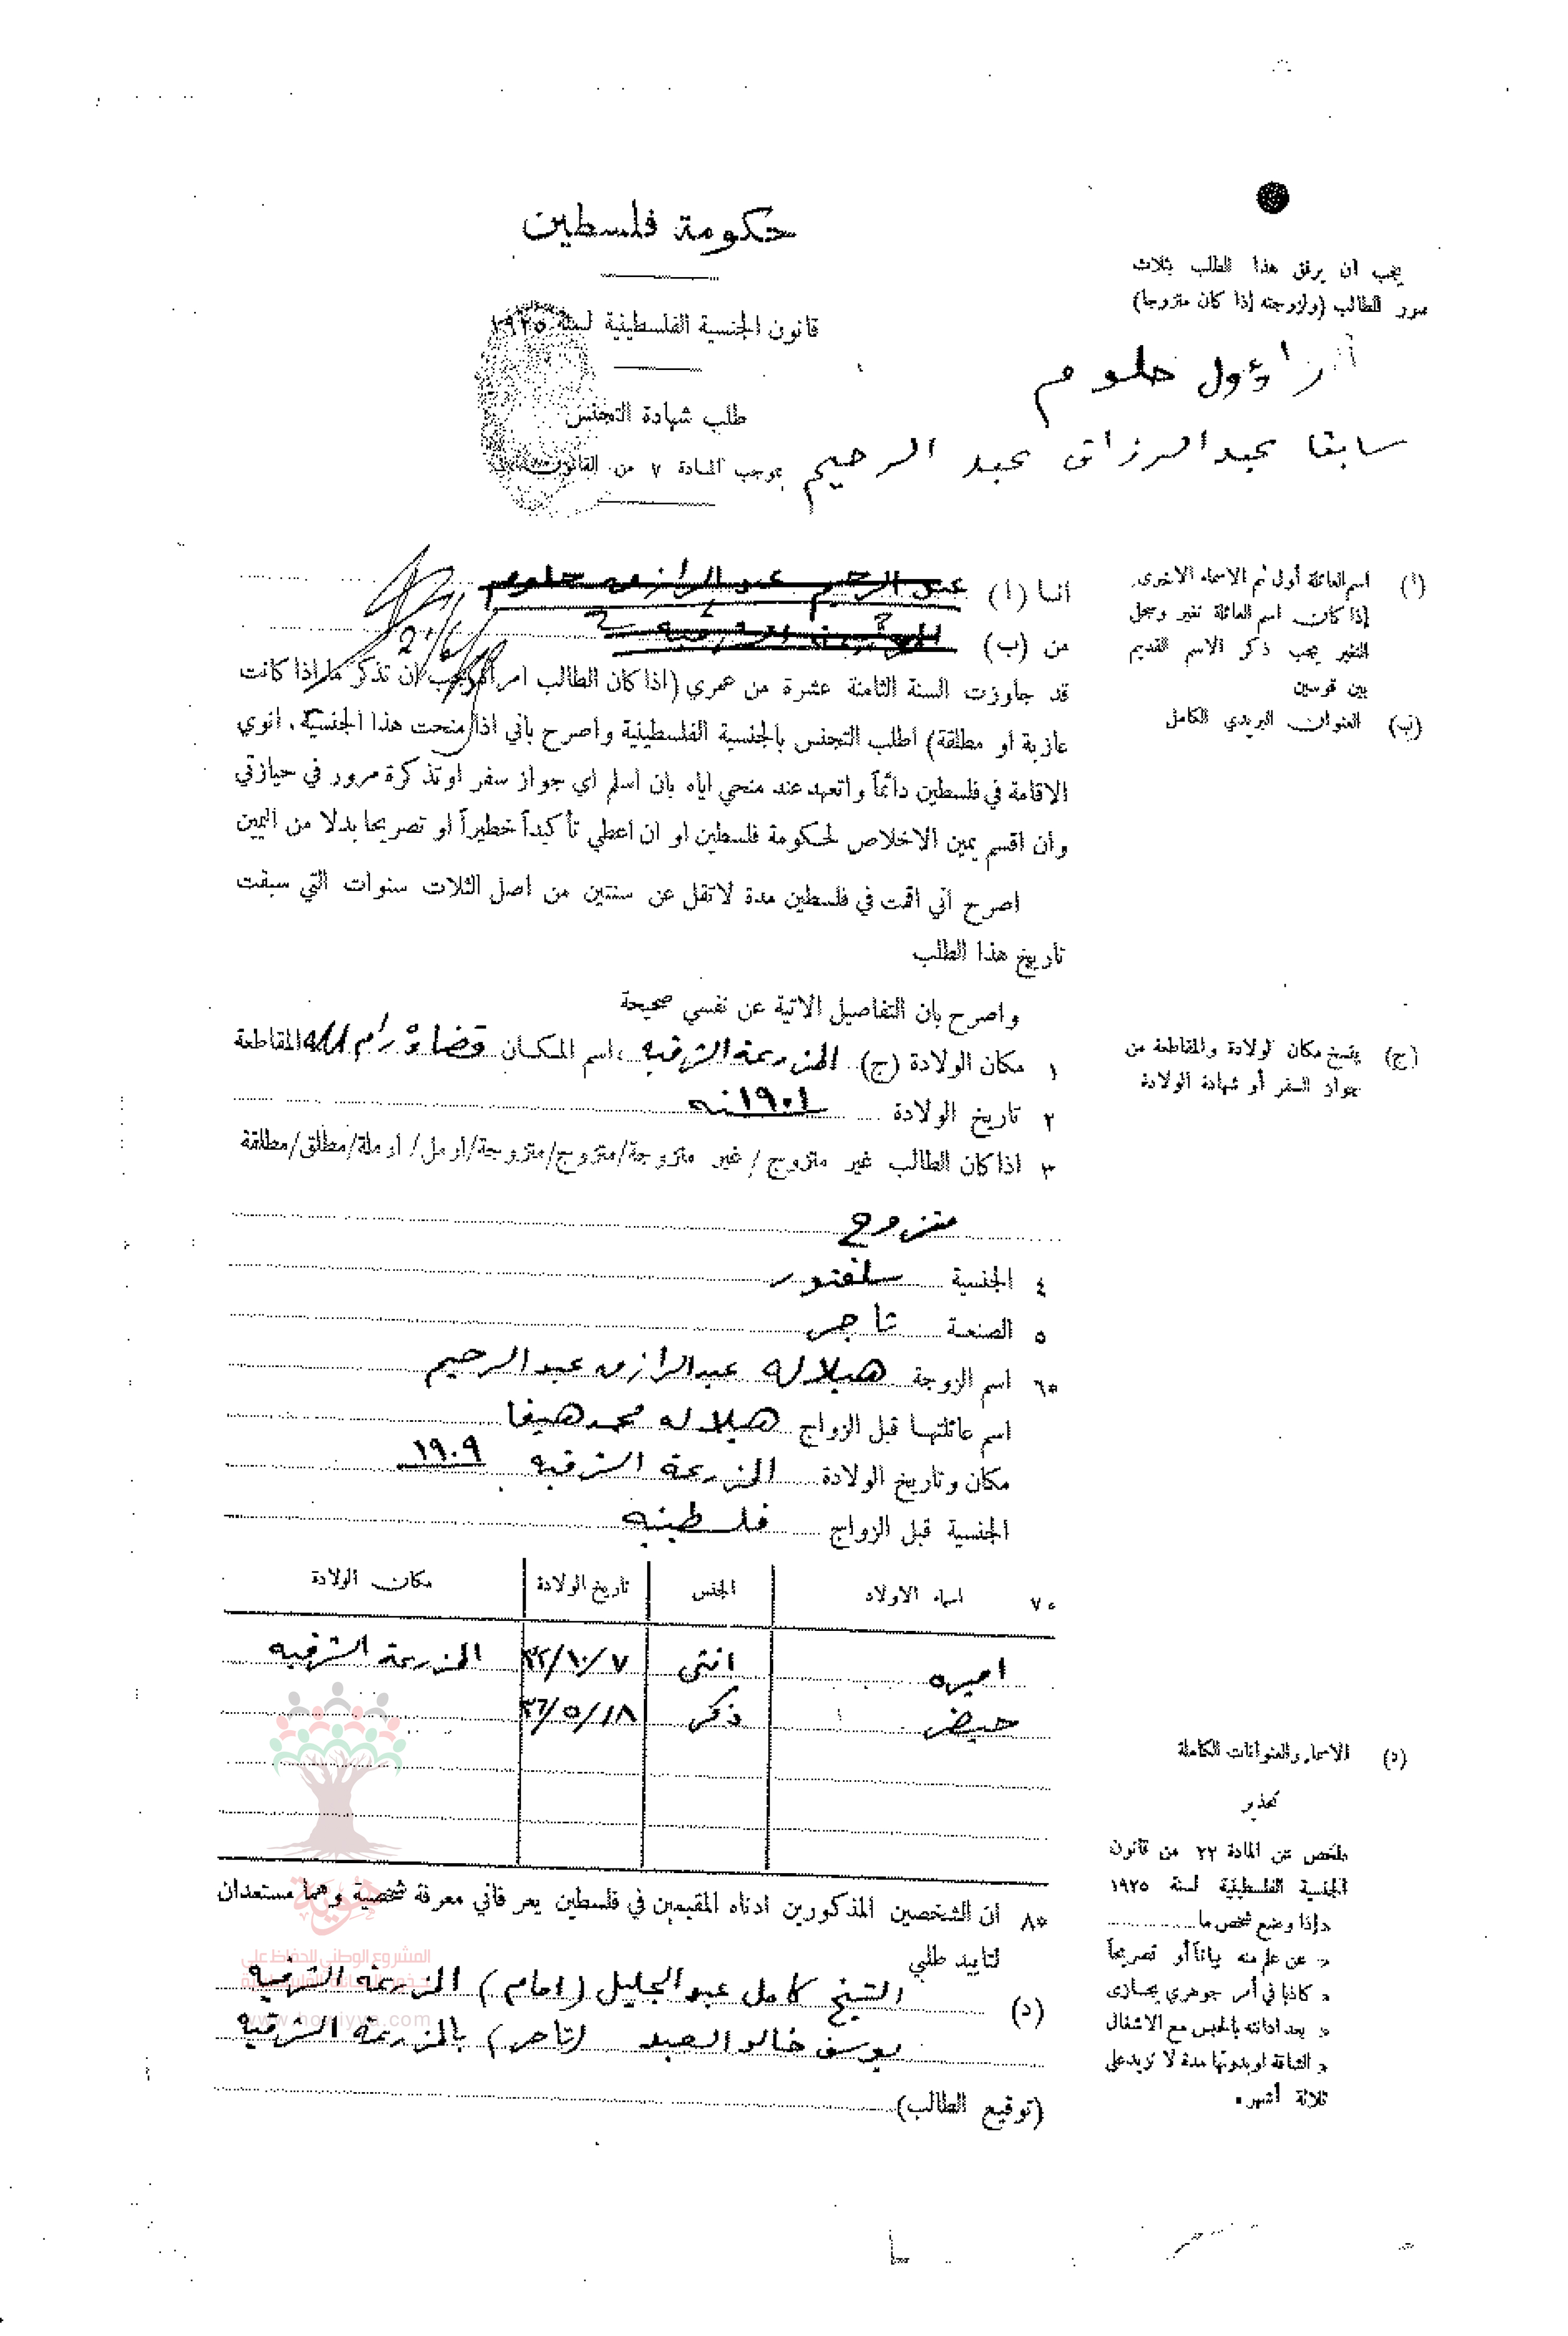 حكومة فلسطين
يجب ان يرفق هذا الطلب بثلاث
صور للطالب (ولزوجته إذا كان متزوجا)
قانون الجنسية الفلسطينية لسنة ١٩٢٥
زاؤول حلوم
طلب شهادة التجنس
سابقا عبد الرزاق عبد الرحيم
بموجب المادة ٧ من القانون
انا (ا) عبد الرحيم عبد الرازق حلوم
من (ب) المزرعة الشرقية
(ا) اسم العائلة أول ثم الاسماء الاخرى.
إذا كان اسم العائلة تغير وسجل
التغير يجب ذكر الاسم القديم
بين قوسين
(ب) العنوان البريدي الكامل
قد جاوزت السنة الثامنة عشرة من عمري (اذا كان الطالب امرأة يجب ان تذكر ما اذا كانت
عازبة او مطلقة) اطلب التجنس بالجنسية الفلسطينية واصرح بأني اذا منحت هذا الجنسية. انوي
الاقامة في فلسطين دائماً واتعهد عند منحي اياه بان اسلم اي جواز سفر او تذكرة مرور في حيازتي
وان اقسم يمين الاخلاص لحكومة فلسطين او ان اعطي تأكيداً خطيراً او تصريحا بدلا من اليمين
اصرح اني اقمت في فلسطين مدة لا تقل عن سنتين من اصل الثلاث سنوات التي سبقت
تاريخ هذا الطلب
واصرح بان التفاصيل الاتية عن نفسي صحيحة
١ مكان الولادة (ج) المزرعة الشرقيه ، اسم المكان قضاء رام الله المقاطعة
(ج) ينسخ مكان الولادة والمقاطعة من
جواز السفر أو شهادة الولادة
٢ تاريخ الولادة ١٩٠١
٣ اذا كان الطالب غير متزوج / غير متزوجة/متزوج/متزوجة/ارمل/ ارملة/مطلق/مطلقة
متزوج
٤ الجنسية سلفدور
٥ الصنعة تاجر
٦٥ اسم الزوجة هيلاله عبدالرازق عبدالرحيم
اسم عائلتها قبل الزواج هيلاله محمد هيفا
مكان وتاريخ الولادة المزرعة الشرقيه ١٩٠٩
الجنسية قبل الزواج فلسطينيه
٧٥ اسماء الاولاد الجنس تاريخ الولادة مكان الولادة
اميره انثى ٧/١٠/٣٢ المزرعة الشرقيه
ذكر ١٨/٥/٣٦
٨٥ ان الشخصين المذكورين ادناه المقيمين في فلسطين يعرفاني معرفة شخصية وهما مستعدان
لتاييد طلبي
(د) الشيخ كامل عبد الجليل (امام) المزرعة الشرقيه
يوسف خالد العبد (تاجر) بالمزرعة الشرقيه
(توقيع الطالب)
(د) الاسماء والعنوانات الكاملة
تحذير
ملخص عن المادة ٢٢ من قانون
الجنسية الفلسطينية لسنة ١٩٢٥
«إذا وضع شخص ما
« عن علم منه بياناً أو تصريحاً
« كاذبا في أمر جوهري يجازى
« بعد ادانته بالحبس مع الاشغال
« الشاقة او بدونها مدة لا تزيد على
ثلاثة أشهر.
هوية
المشروع الوطني للحفاظ على
www.howiyya.com